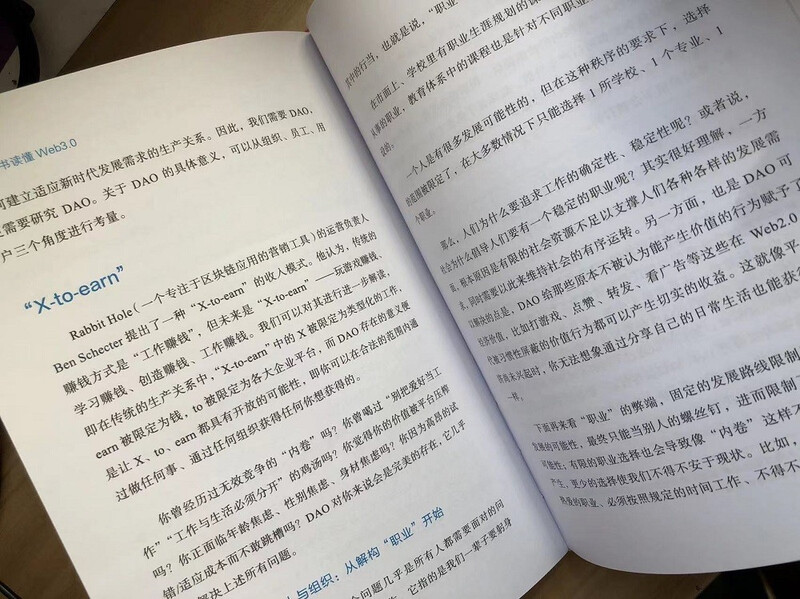 书读懂 Web3.0
可建立适应新时代发展需求的生产关系。因此，我们需要 DAO，
需要研究 DAO。关于 DAO 的具体意义，可以从组织、员工、用
户三个角度进行考量。
“X-to-earn”
Rabbit Hole（一个专注于区块链应用的营销工具）的运营负责人
Ben Schecter 提出了一种“X-to-earn”的收入模式。他认为，传统的
赚钱方式是“工作赚钱”，但未来是“X-to-earn”——玩游戏赚钱、
学习赚钱、创造赚钱、工作赚钱。我们可以对其进行进一步解读，
即在传统的生产关系中，“X-to-earn”中的 X 被限定为类型化的工作，
earn 被限定为钱，to 被限定为各大企业平台，而 DAO 存在的意义便
是让 X、to、earn 都具有开放的可能性，即你可以在合法的范围内通
过做任何事、通过任何组织获得任何你想获得的。
你曾经历过无效竞争的“内卷”吗？你曾喝过“别把爱好当工
作”“工作与生活必须分开”的鸡汤吗？你觉得你的价值被平台压榨
吗？你正面临年龄焦虑、性别焦虑、身材焦虑吗？你因为高昂的试
错/适应成本而不敢跳槽吗？DAO 对你来说会是完美的存在，它几乎
解决上述所有问题。
与组织：从解构“职业”开始
问题几乎是所有人都需要面对的问
它指的是我们一辈子要躬身
其中的行当，也就是说，“职业
在市面上、学校里有职业生涯规划的课
从事的职业，教育体系中的课程也是针对不同职业
设的。
一个人是有很多发展可能性的，但在这种秩序的要求下，选择
的范围被限定了，在大多数情况下只能选择 1 所学校、1 个专业、1
个职业。
那么，人们为什么要追求工作的确定性、稳定性呢？或者说，
社会为什么倡导人们要有一个稳定的职业呢？其实很好理解，一方
面，根本原因是有限的社会资源不足以支撑人们各种各样的发展需
求，同时需要以此来维持社会的有序运转。另一方面，也是 DAO 可
以解决的点是，DAO 给那些原本不被认为能产生价值的行为赋予了
经济价值，比如打游戏、点赞、转发、看广告等这些在 Web2.0
代被习惯性屏蔽的价值行为都可以产生切实的收益。这就像平
济尚未兴起时，你无法想象通过分享自己的日常生活也能获
一样。
下面再来看“职业”的弊端，固定的发展路线限制
的可能性，最终只能当别人的螺丝钉，进而限制
可能性；有限的职业选择也会导致像“内卷”这样
产生，更少的选择使我们不得不安于现状。比如，
热爱的职业、必须按照规定的时间工作、不得不